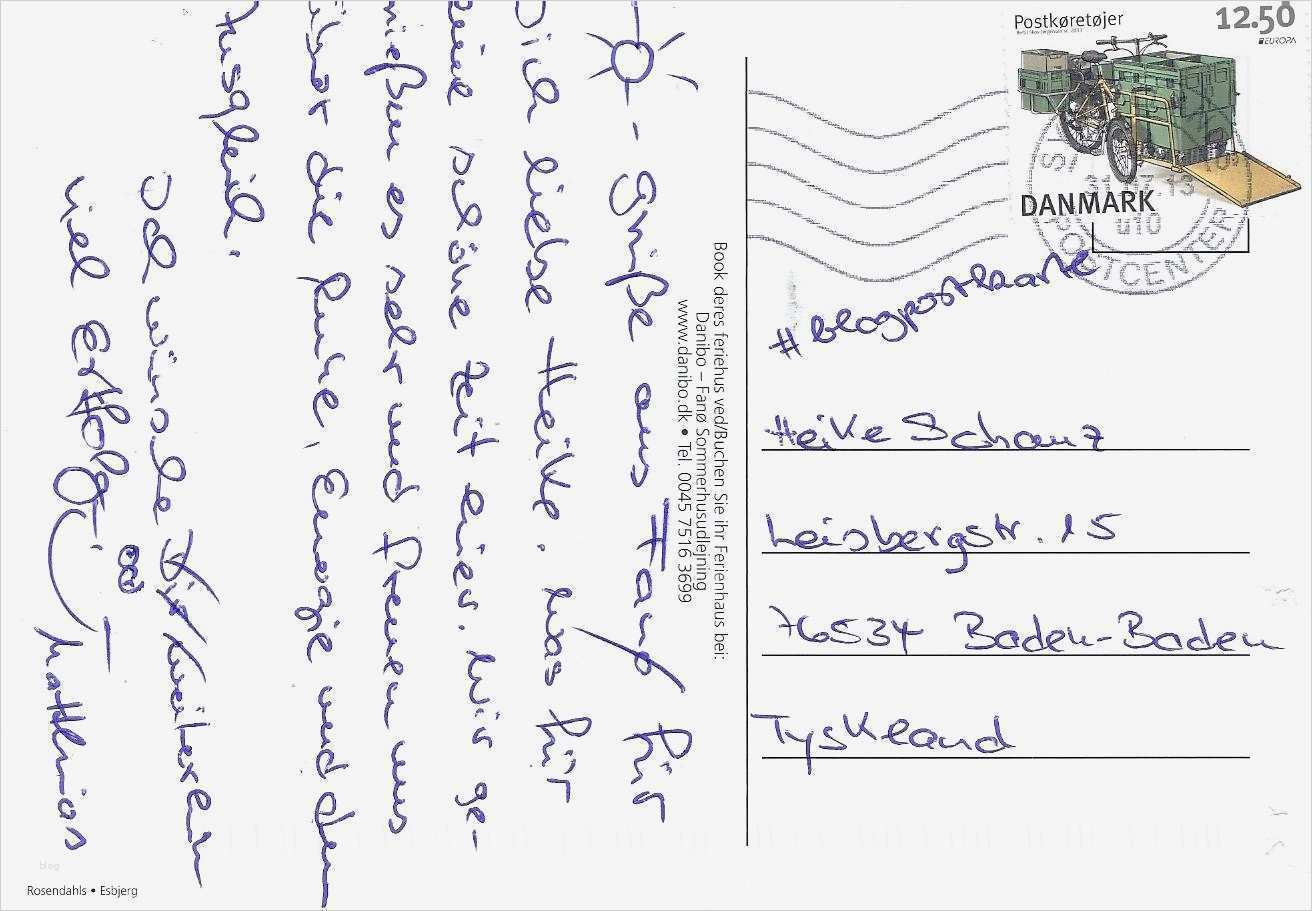 ☼ - Grüße aus Fanø für
Dich liebe Heike. Was für
eine schöne Zeit hier. Wir ge-
nießen es sehr und freuen uns
über die Ruhe, Energie und den
Ausgleich.
Ich wünsche Dir weiterhin
viel Erfolg.
Matthias
Book deres feriehus ved/Buchen Sie ihr Ferienhaus bei:
Danibo – Fanø Sommerhusudlejning
www.danibo.dk • Tel. 0045 7516 3699
Postkøretøjer
12.50
EUROPA
DANMARK
31.07.13
u10
POSTCENTER
#blogpostkarte
Heike Schanz
Leisbergstr. 15
76534 Baden-Baden
Tyskland
blog
Rosendahls • Esbjerg